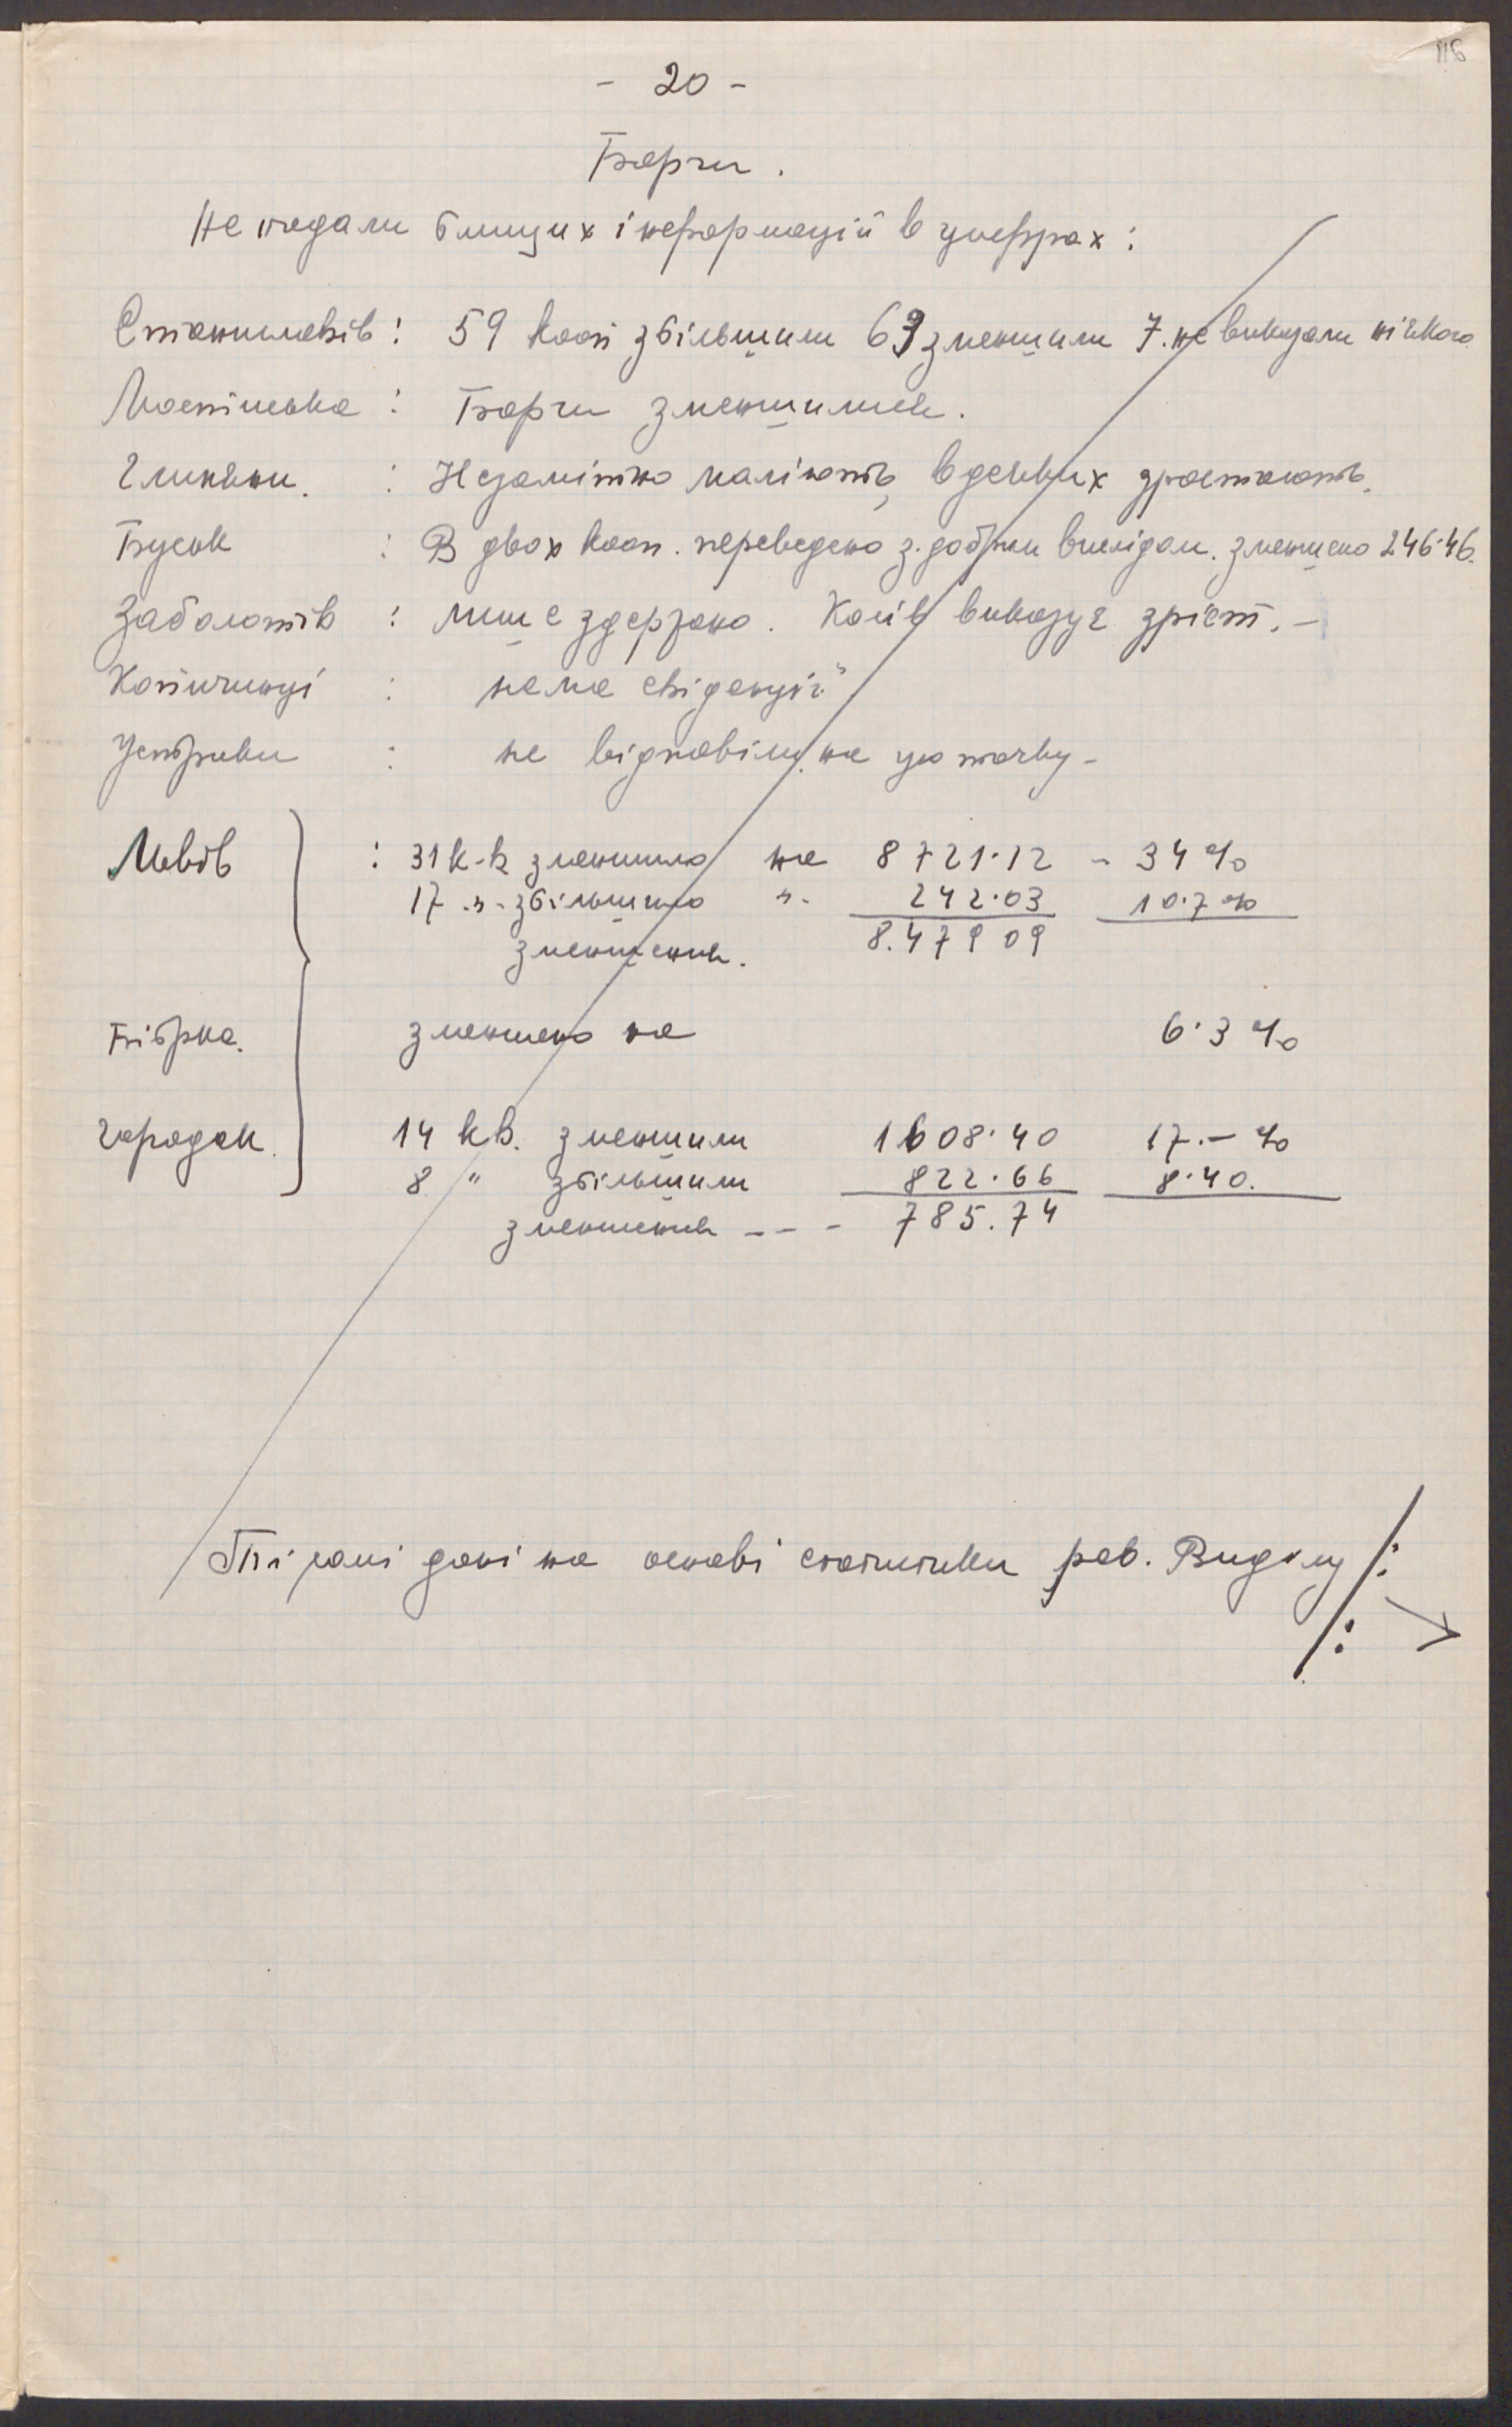 116
- 20 -
Борги.
Не подали блищих інформацій в цифрах:
Станиславів: 59 кооп збільшили 63 зменшили 7. не виказали ніякого
Мостиська: Борги зменшились.
Глиняни. : Незамітно маліють, в деяких зростають.
Буськ : В двох кооп. переведено з. добрим вислідом. зменшено 246·46.
Заболотів : лише здержано. Косів виказує зріст. -
Копичинці : нема евіденції
Устрики : не відповіли на цю точку -
Львів : 31 к-в зменшило на 8721·12 - 34 %
17 -"- збільшило "- 242·03 10·7 %
зменшення. 8.479 09
Бібрка. зменшено на 6·3 %
Городок. 14 кв. зменшили 1608·40 17.- %
8 " збільшили 822·66 8·40.
зменшення --- 785.74
Ті самі дані на основі статистики рев. Видїлу /:
/: →